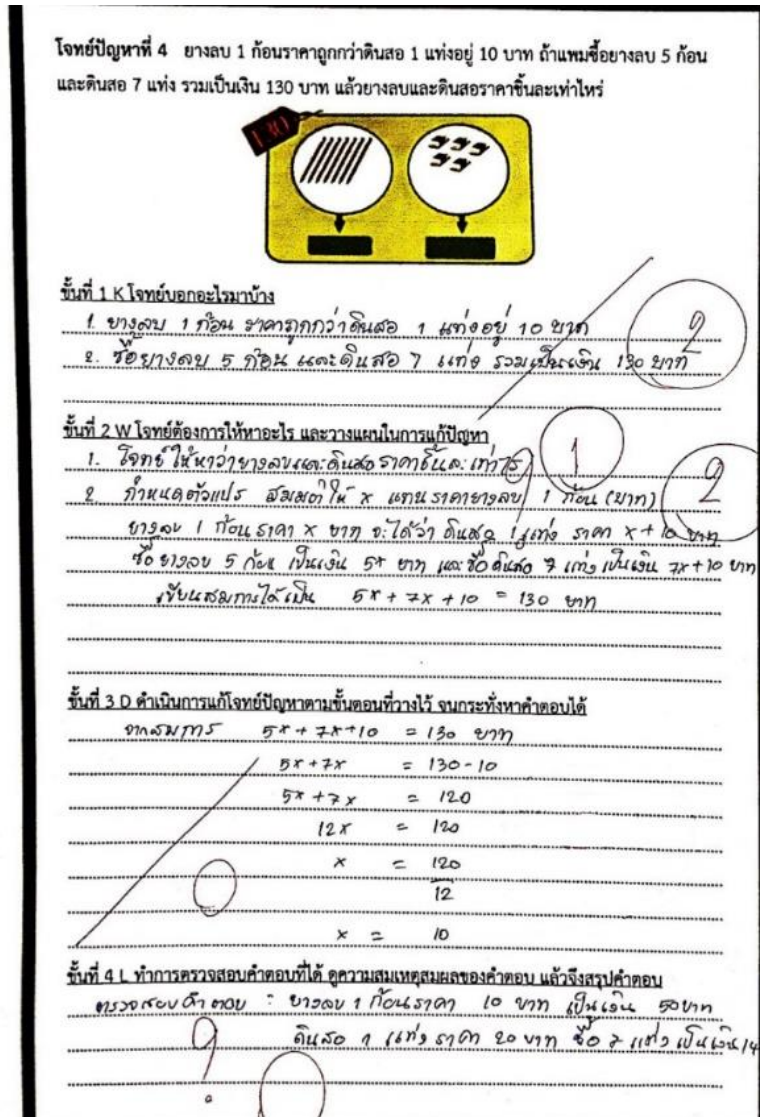 โจทย์ปัญหาที่ 4 ยางลบ 1 ก้อนราคาถูกกว่าดินสอ 1 แท่งอยู่ 10 บาท ถ้าแพมซื้อยางลบ 5 ก้อน
และดินสอ 7 แท่ง รวมเป็นเงิน 130 บาท แล้วยางลบและดินสอราคาชิ้นละเท่าไหร่
130
ขั้นที่ 1 K โจทย์บอกอะไรมาบ้าง
1. ยางลบ 1 ก้อน ราคาถูกกว่าดินสอ 1 แท่งอยู่ 10 บาท
2. ซื้อยางลบ 5 ก้อน และดินสอ 7 แท่ง รวมเป็นเงิน 130 บาท
2
ขั้นที่ 2 W โจทย์ต้องการให้หาอะไร และวางแผนในการแก้ปัญหา
1. โจทย์ให้หาว่ายางลบและดินสอราคาชิ้นละเท่าไร
1
2 กำหนดตัวแปร สมมติให้ x แทนราคายางลบ 1 ก้อน (บาท)
2
ยางลบ 1 ก้อน ราคา x บาท จะได้ว่า ดินสอ 1 แท่ง ราคา x + 10 บาท
ซื้อยางลบ 5 ก้อน เป็นเงิน 5x บาท และซื้อดินสอ 7 แท่ง เป็นเงิน 7x + 10 บาท
เขียนสมการได้เป็น 5x + 7x + 10 = 130 บาท
ขั้นที่ 3 D ดำเนินการแก้โจทย์ปัญหาตามขั้นตอนที่วางไว้ จนกระทั่งหาคำตอบได้
จากสมการ 5x + 7x + 10 = 130 บาท
5x + 7x = 130 - 10
5x + 7x = 120
12x = 120
x = 120
12
x = 10
ขั้นที่ 4 L ทำการตรวจสอบคำตอบที่ได้ ดูความสมเหตุสมผลของคำตอบ แล้วจึงสรุปคำตอบ
ตรวจสอบคำตอบ : ยางลบ 1 ก้อนราคา 10 บาท เป็นเงิน 50 บาท
ดินสอ 1 แท่ง ราคา 20 บาท ซื้อ 7 แท่ง เป็นเงิน 14
?